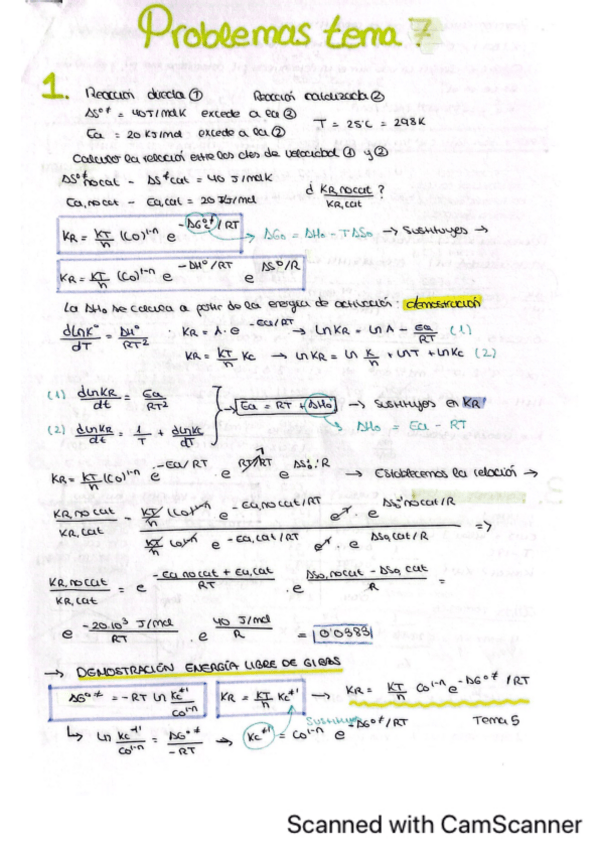 Problemas tema 7
1. Reacción directa ① Reacción catalizada ②
ΔS°≠ = 40 J/molK excede a la ② T = 25°C = 298K
Ea = 20 KJ/mol excede a la ②
Calcular la relación entre las ctes de velocidad ① y ②
ΔS°≠nocat - ΔS°≠cat = 40 J/molK
Ea,nocat - Ea,cat = 20 KJ/mol ¿ KR,nocat / KR,cat ?
KR = KT/h (Co)^1-n e^-ΔG°≠/RT → ΔGo = ΔHo - TΔSo → Sustituyes →
KR = KT/h (Co)^1-n e^-ΔH°/RT e^ΔS°/R
La ΔHo se calcula a partir de la energía de activación: demostración
dlnK°/dT = ΔH°/RT² · KR = A·e^-Ea/RT → lnKR = lnA - Ea/RT (1)
KR = KT/h Kc → lnKR = ln K/h + lnT + lnKc (2)
(1) dlnKR/dt = Ea/RT²
Ea = RT + ΔHo → Sustituyes en KR
(2) dlnKR/dt = 1/T + dlnKc/dT ΔHo = Ea - RT
KR = KT/h (Co)^1-n e^-Ea/RT e^RT/RT e^ΔSo/R → Establecemos la relación →
KR,nocat / KR,cat = KT/h (Co)^1-n e^-Ea,nocat/RT e^1 · e^ΔSo nocat/R / KT/h Co^1-n e^-Ea,cat/RT e^1 · e^ΔSo,cat/R =>
KR,nocat / KR,cat = e^(-Ea nocat + Ea,cat / RT) · e^(ΔSo,nocat - ΔSo,cat / R) =
e^(-20·10³ J/mol / RT) · e^(40 J/mol / R) = 0'0383
→ DEMOSTRACIÓN ENERGÍA LIBRE DE GIBBS
ΔG°≠ = -RT ln Kc≠'/Co^1-n KR = KT/h Kc≠' → KR = KT/h Co^1-n e^-ΔG°≠/RT
Sustituyes Tema 5
↳ ln Kc≠'/Co^1-n = ΔG°≠/-RT → Kc≠' = Co^1-n e^-ΔG°≠/RT
Scanned with CamScanner